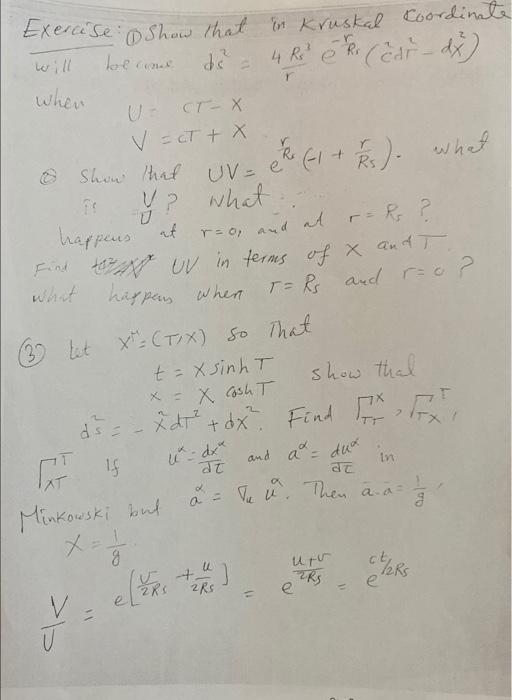 Exercise: ① Show that in Kruskal Coordinate
will become ds² = 4Rs³/r e^(-r/Rs) (c²dT² - dX²)
when U = CT - X
V = CT + X
② Show that UV = e^(r/Rs) (-1 + r/Rs). what
is V/U? what
happens at r=0, and at r = Rs?
Find UV in terms of X and T
what happens when r = Rs and r=0?
③ let X^μ = (T,X) so that
t = X sinh T
x = X cosh T show that
ds² = -X²dT² + dX². Find Γ^X_TT, Γ^T_TX,
Γ^T_XT If u^α = dx^α/dτ and a^α = du^α/dτ in
Minkowski but a^α = ∇_u u^α. Then a·a = 1/g,
X = 1/g.
V/U = e^[v/2Rs + u/2Rs] = e^((u+v)/2Rs) = e^(ct/2Rs)